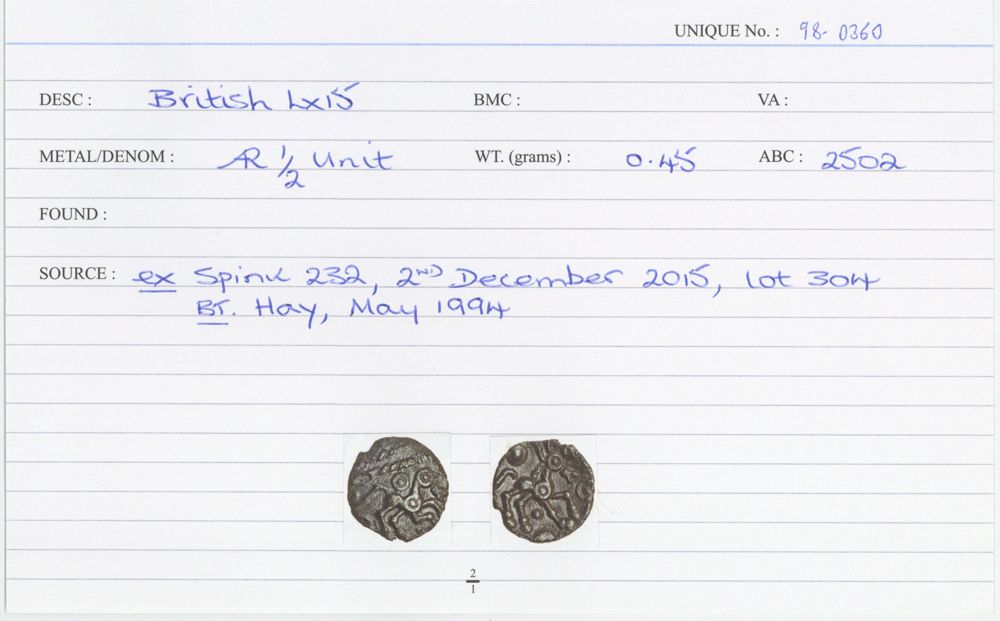 UNIQUE No. : 98-0360
DESC : British Lx15 BMC : VA :
METAL/DENOM : AR 1/2 Unit WT. (grams) : 0.45 ABC : 2502
FOUND :
SOURCE : ex Spink 232, 2ND December 2015, lot 304
BT. Hay, May 1994
2
1